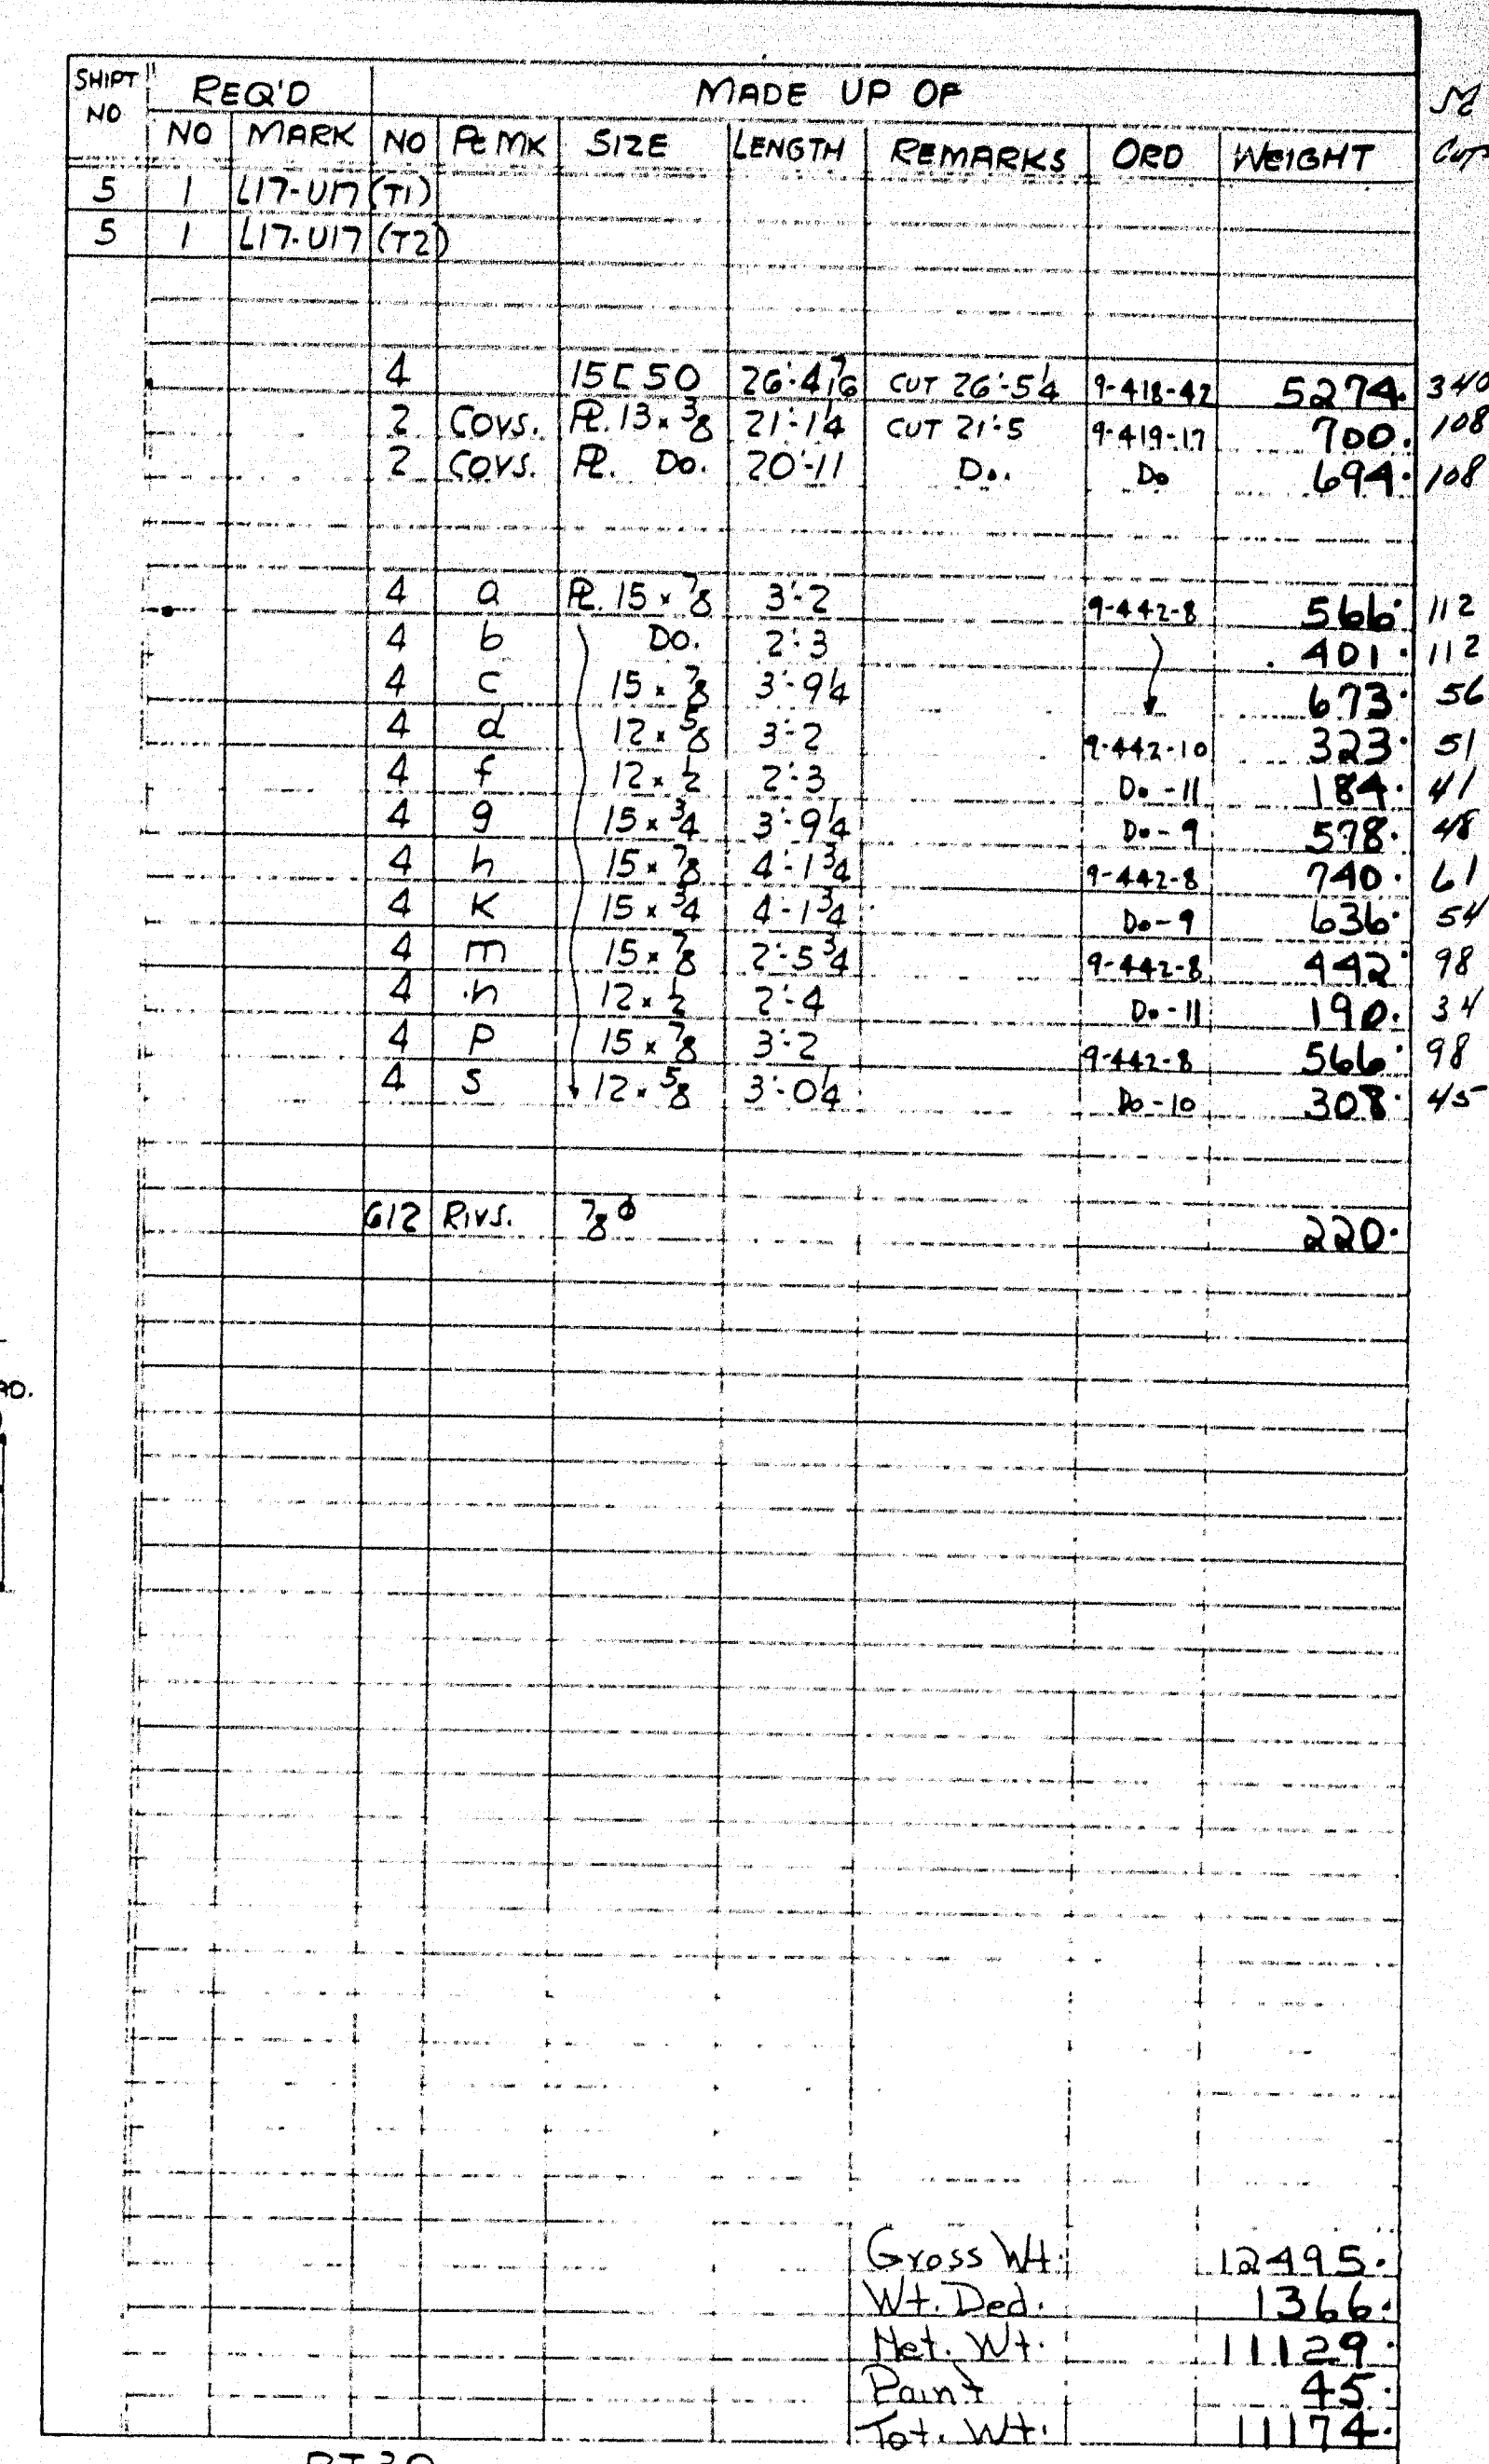 SHIPT NO REQ'D MADE UP OF
NO MARK NO PC MK SIZE LENGTH REMARKS ORD WEIGHT
5 1 L17-U17 (T1)
5 1 L17-U17 (T2)
4 15 [ 50 26'-4 7/16 CUT 26'-5 1/4 9-418-42 5274. 340
2 COVS. PL. 13 x 3/8 21'-1 1/4 CUT 21'-5 9-419-17 700. 108
2 COVS. PL. Do. 20'-11 Do. Do 694. 108
4 a PL. 15 x 7/8 3'-2 9-442-8 566. 112
4 b DO. 2'-3 401. 112
4 c 15 x 7/8 3'-9 1/4 673. 56
4 d 12 x 5/8 3'-2 9-442-10 323. 51
4 f 12 x 1/2 2'-3 Do-11 184. 41
4 g 15 x 3/4 3'-9 1/4 Do-9 578. 48
4 h 15 x 7/8 4'-1 3/4 9-442-8 740. 61
4 K 15 x 3/4 4'-1 3/4 Do-9 636. 54
4 m 15 x 7/8 2'-5 3/4 9-442-8 442. 98
4 n 12 x 1/2 2'-4 Do-11 190. 34
4 p 15 x 7/8 3'-2 9-442-8 566. 98
4 s 12 x 5/8 3'-0 1/4 Do-10 308. 45
612 RIVS. 7/8 ø 220.
Gross Wt. 12495.
Wt. Ded. 1366.
Net. Wt. 11129.
Paint 45.
Tot. Wt. 11174.